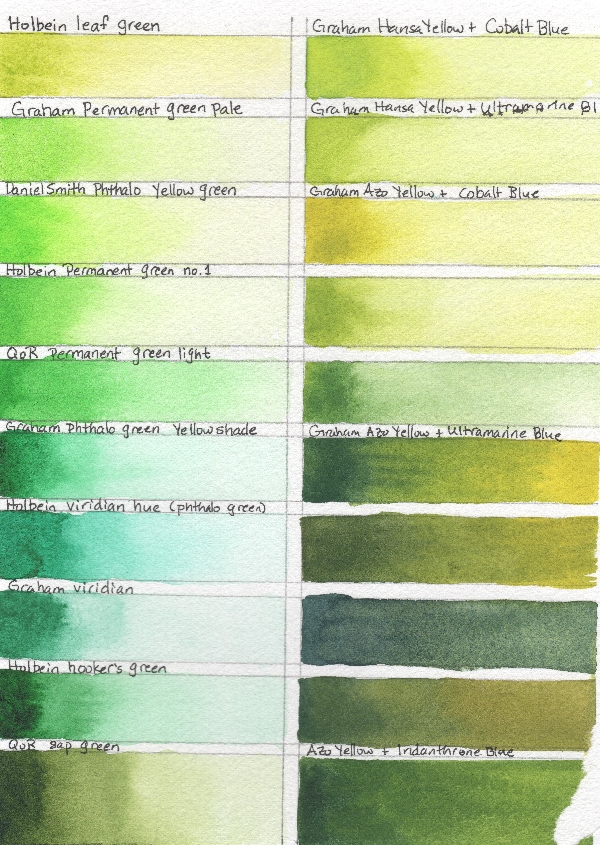 Holbein leaf green
Graham Permanent green pale
Daniel Smith Phthalo Yellow green
Holbein Permanent green no.1
QoR Permanent green light
Graham Phthalo green Yellow shade
Holbein viridian hue (phthalo green)
Graham viridian
Holbein hooker's green
QoR sap green
Graham Hansa Yellow + Cobalt Blue
Graham Hansa Yellow + Ultramarine Bl
Graham Azo Yellow + Cobalt Blue
Graham Azo Yellow + Ultramarine Blue
Azo Yellow + Indanthrone Blue